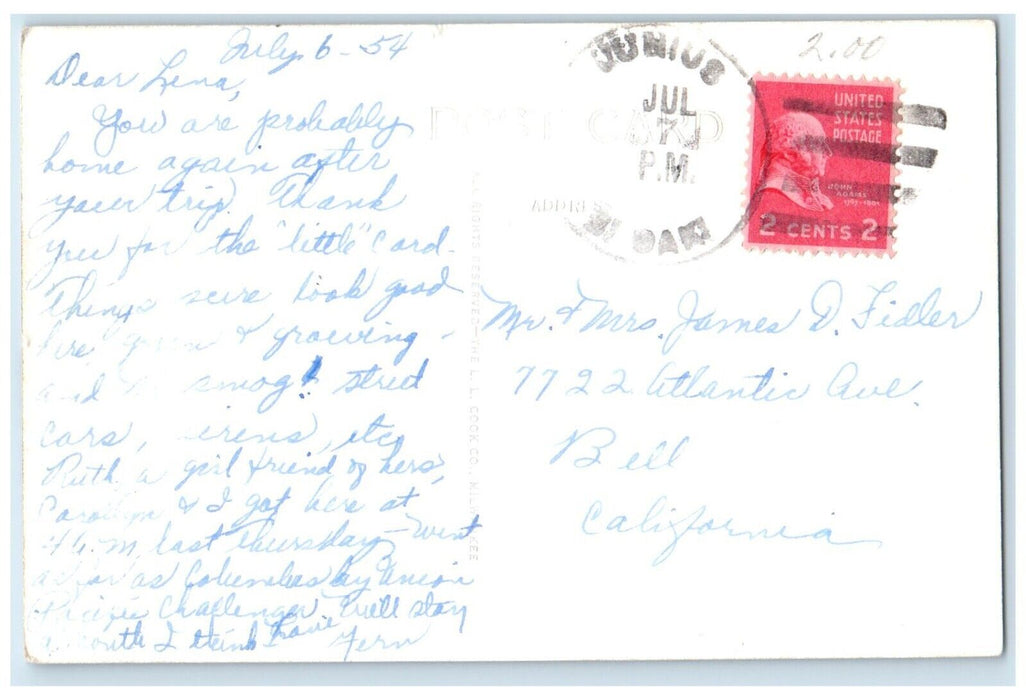 July 6 - 54
Dear Lena,
You are probably
home again after
your trip. Thank
you for the "little" card.
Things sure look good
here, green & growing -
and no smog! street
cars, sirens, etc.
Ruth, a girl friend of hers,
Carolyn & I got here at
4 a.m. last Thursday - went
as far as Columbus by Union
Pacific Challenger. We'll stay
a month I think
Love
Fern
POST CARD
ADDRESS
RIGHTS RESERVED - THE L. L. COOK CO., MILWAUKEE
JUNIUS
JUL
7
P.M.
S. DAK.
2.00
UNITED
STATES
POSTAGE
JOHN
ADAMS
2 CENTS 2
Mr. & Mrs. James D. Fidler
7722 Atlantic Ave.
Bell
California